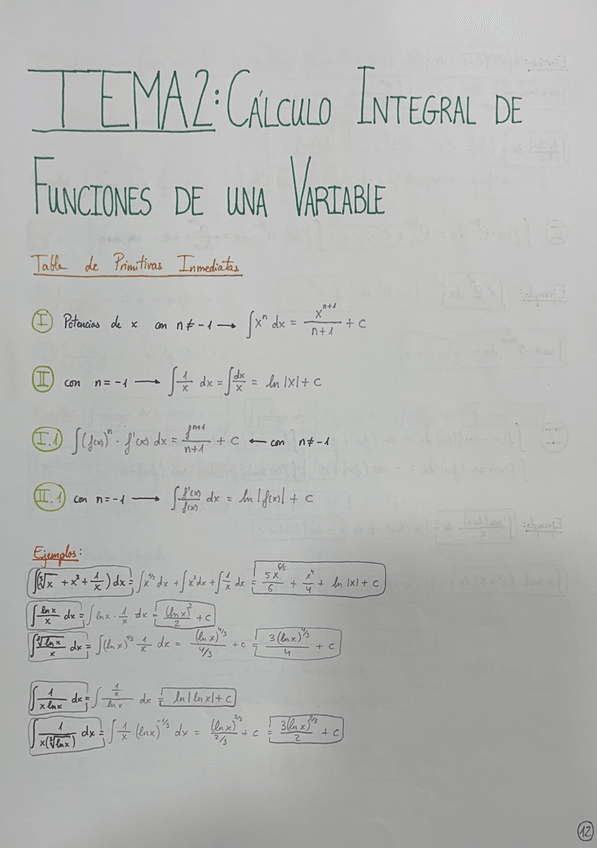 TEMA 2: CÁLCULO INTEGRAL DE
FUNCIONES DE UNA VARIABLE
Tabla de Primitivas Inmediatas
I Potencias de x con n ≠ -1 → ∫xⁿ dx = xⁿ⁺¹/(n+1) + C
II con n = -1 → ∫1/x dx = ∫dx/x = ln|x| + C
I.1 ∫(f(x))ⁿ · f'(x) dx = fⁿ⁺¹/(n+1) + C ← con n ≠ -1
II.1 con n = -1 → ∫f'(x)/f(x) dx = ln|f(x)| + C
Ejemplos:
∫(⁵√x + x³ + 1/x) dx = ∫x^(1/5) dx + ∫x³ dx + ∫1/x dx = 5x^(6/5)/6 + x⁴/4 + ln|x| + C
∫ln x/x dx = ∫ln x · 1/x dx = (ln x)²/2 + C
∫³√(ln x)/x dx = ∫(ln x)^(1/3) · 1/x dx = (ln x)^(4/3)/(4/3) + C = 3(ln x)^(4/3)/4 + C
∫1/(x ln x) dx = ∫(1/x)/(ln x) dx = ln|ln x| + C
∫1/(x(³√ln x)) dx = ∫1/x (ln x)^(-1/3) dx = (ln x)^(2/3)/(2/3) + C = 3(ln x)^(2/3)/2 + C
12